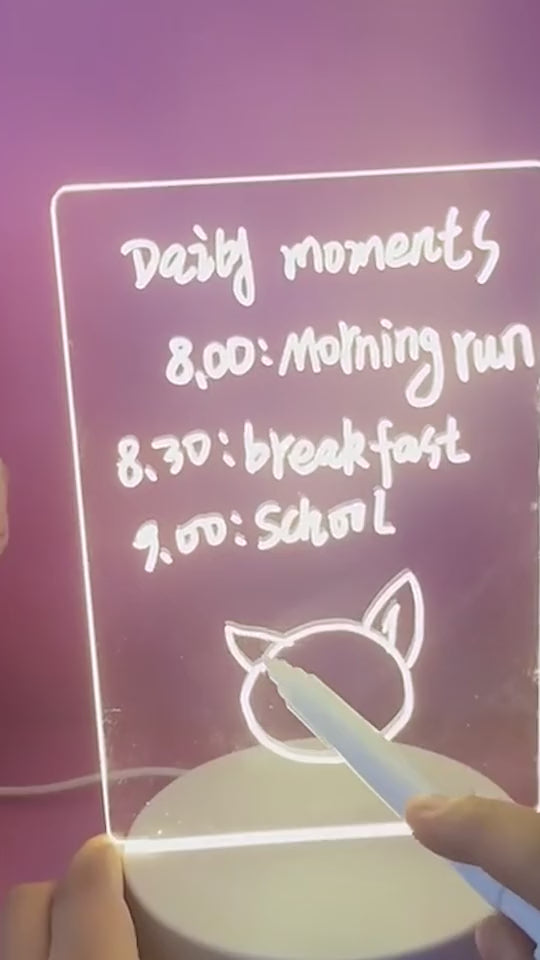 Daily moments
8.00: Morning run
8.30: breakfast
9.00: School